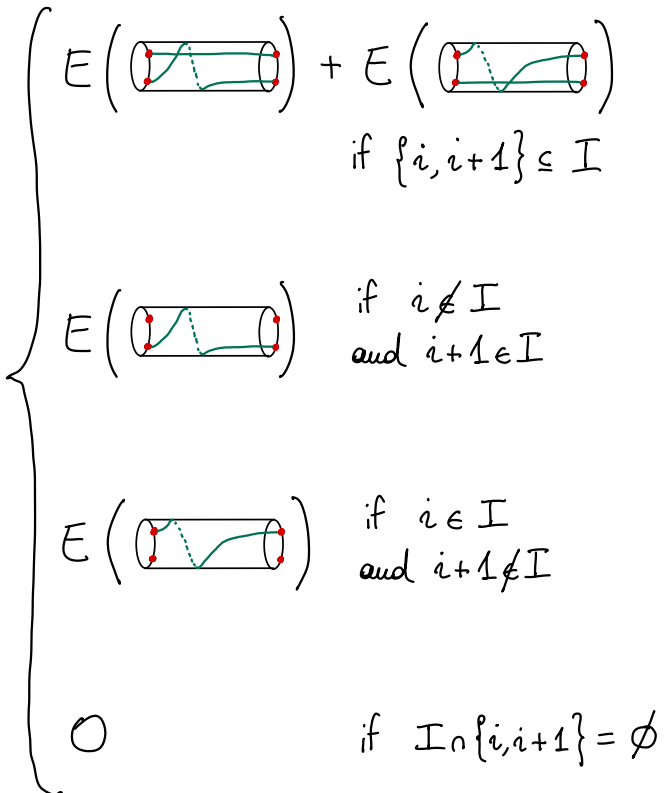 E ( ) + E ( )
if {i, i+1} ⊆ I
E ( ) if i ∉ I
and i+1 ∈ I
E ( ) if i ∈ I
and i+1 ∉ I
0 if I ∩ {i, i+1} = ∅